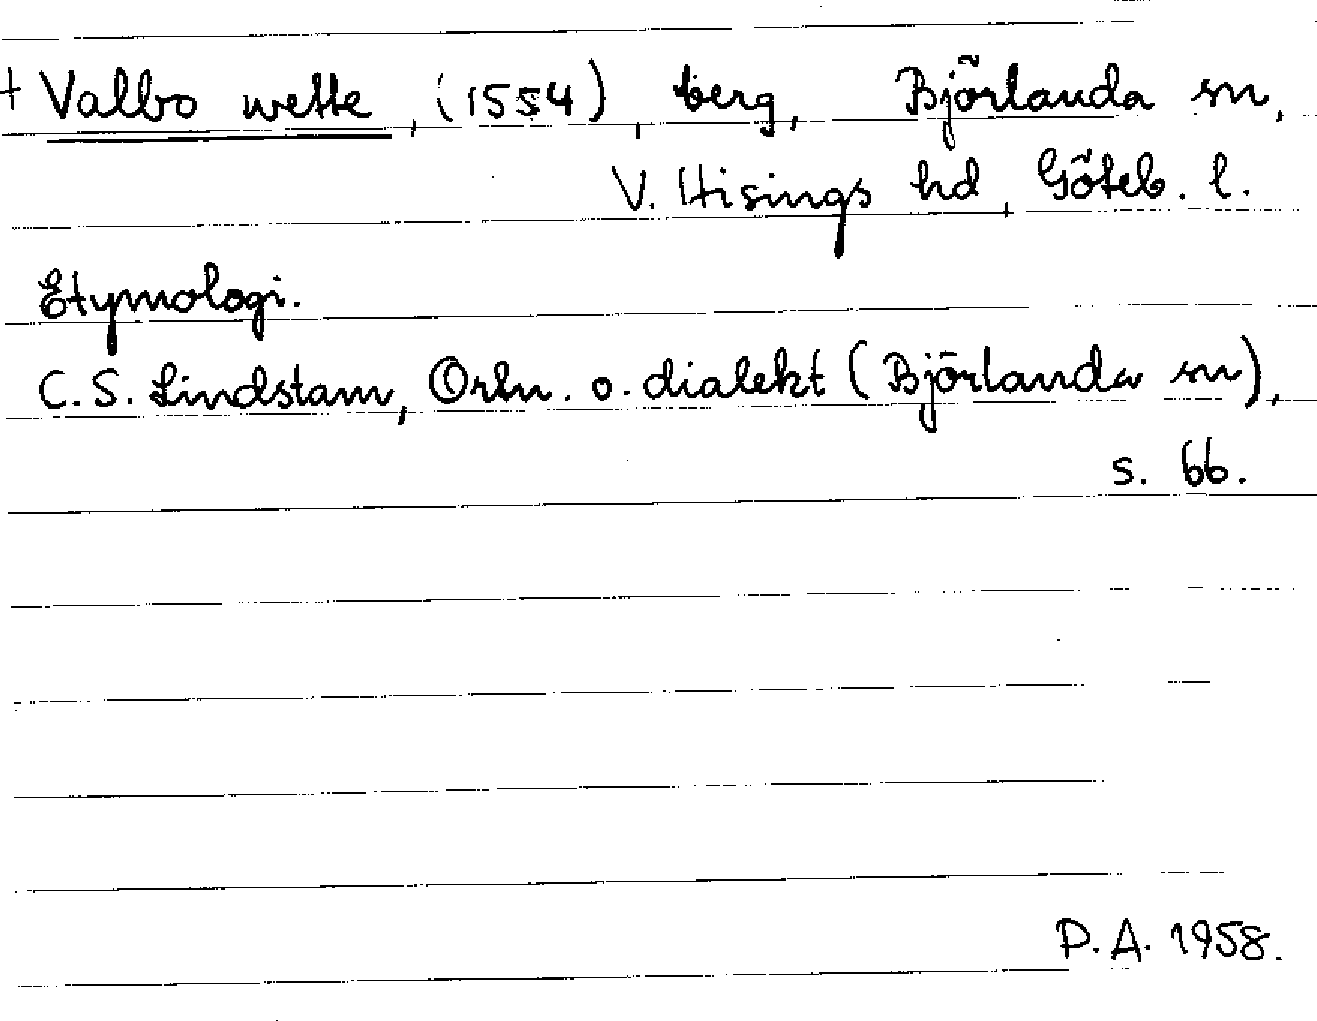 + Valbo wette, (1554), berg, Björlanda sn,
V. Hisings hd, Göteb. l.
Etymologi.
C. S. Lindstam, Ortn. o. dialekt (Björlanda sn),
s. 66.
P. A. 1958.